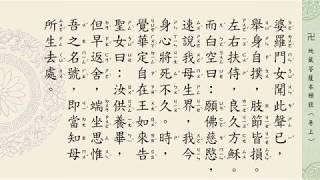 卍 地藏菩薩本願經（卷上）
婆羅門女聞此聲已，
舉身自撲，肢節皆損。
左右扶侍，良久方穌。
而白空曰：願佛慈愍，
速說我母生界，我今
身心將死不久。時，
覺華定自在王如來告
聖女曰：汝供養畢，
但早返舍，端坐思惟
吾之名號，即當知母
所生去處。